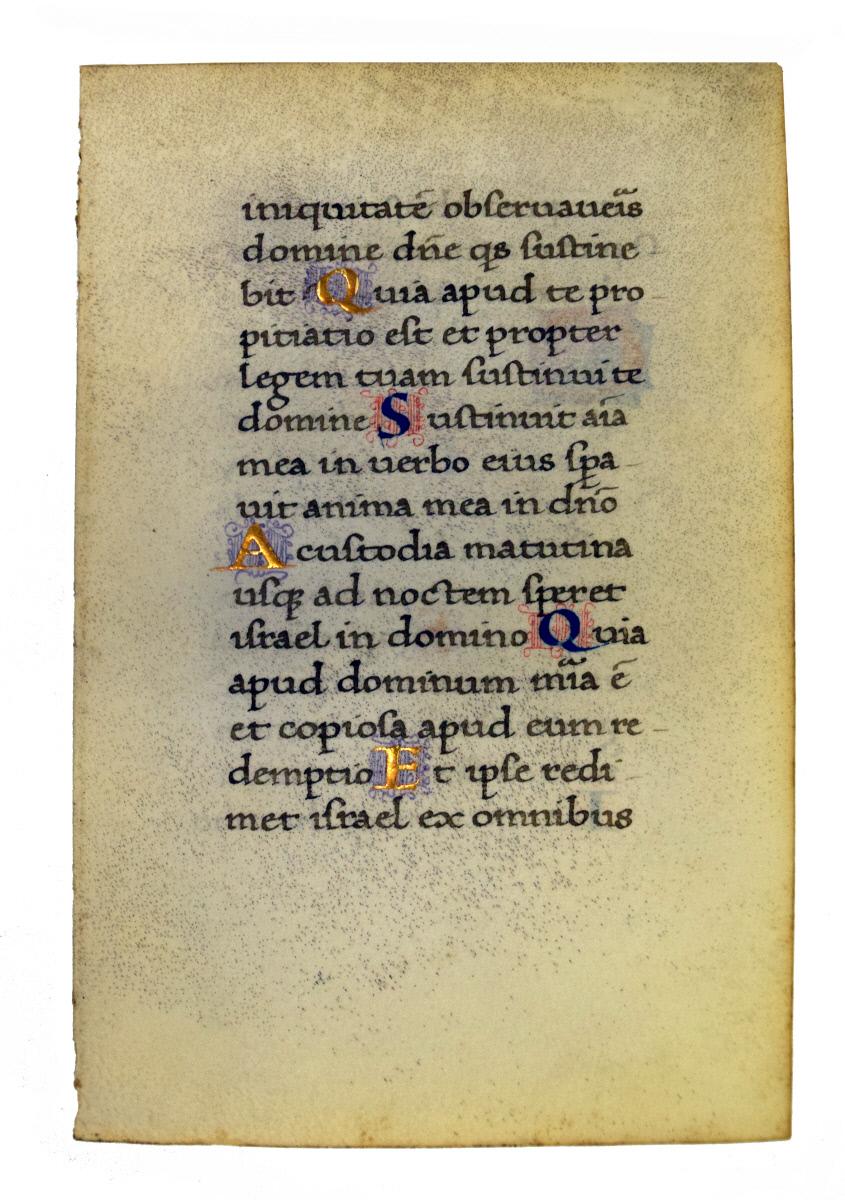 iniquitatē obſeruaueīs
domine dn̄e qͥs ſuſtine
bit Quia apud te pro
pitiatio eſt et propter
legem tuam ſuſtinui te
domine Suſtinuit aīa
mea in uerbo eius ſꝑa
uit anima mea in dn̄o
A cuſtodia matutina
uſqꝫ ad noctem ſperet
iſrael in domino Quia
apud dominum mīa ē
et copioſa apud eum re
demptio Et ipſe redi
met iſrael ex omnibus